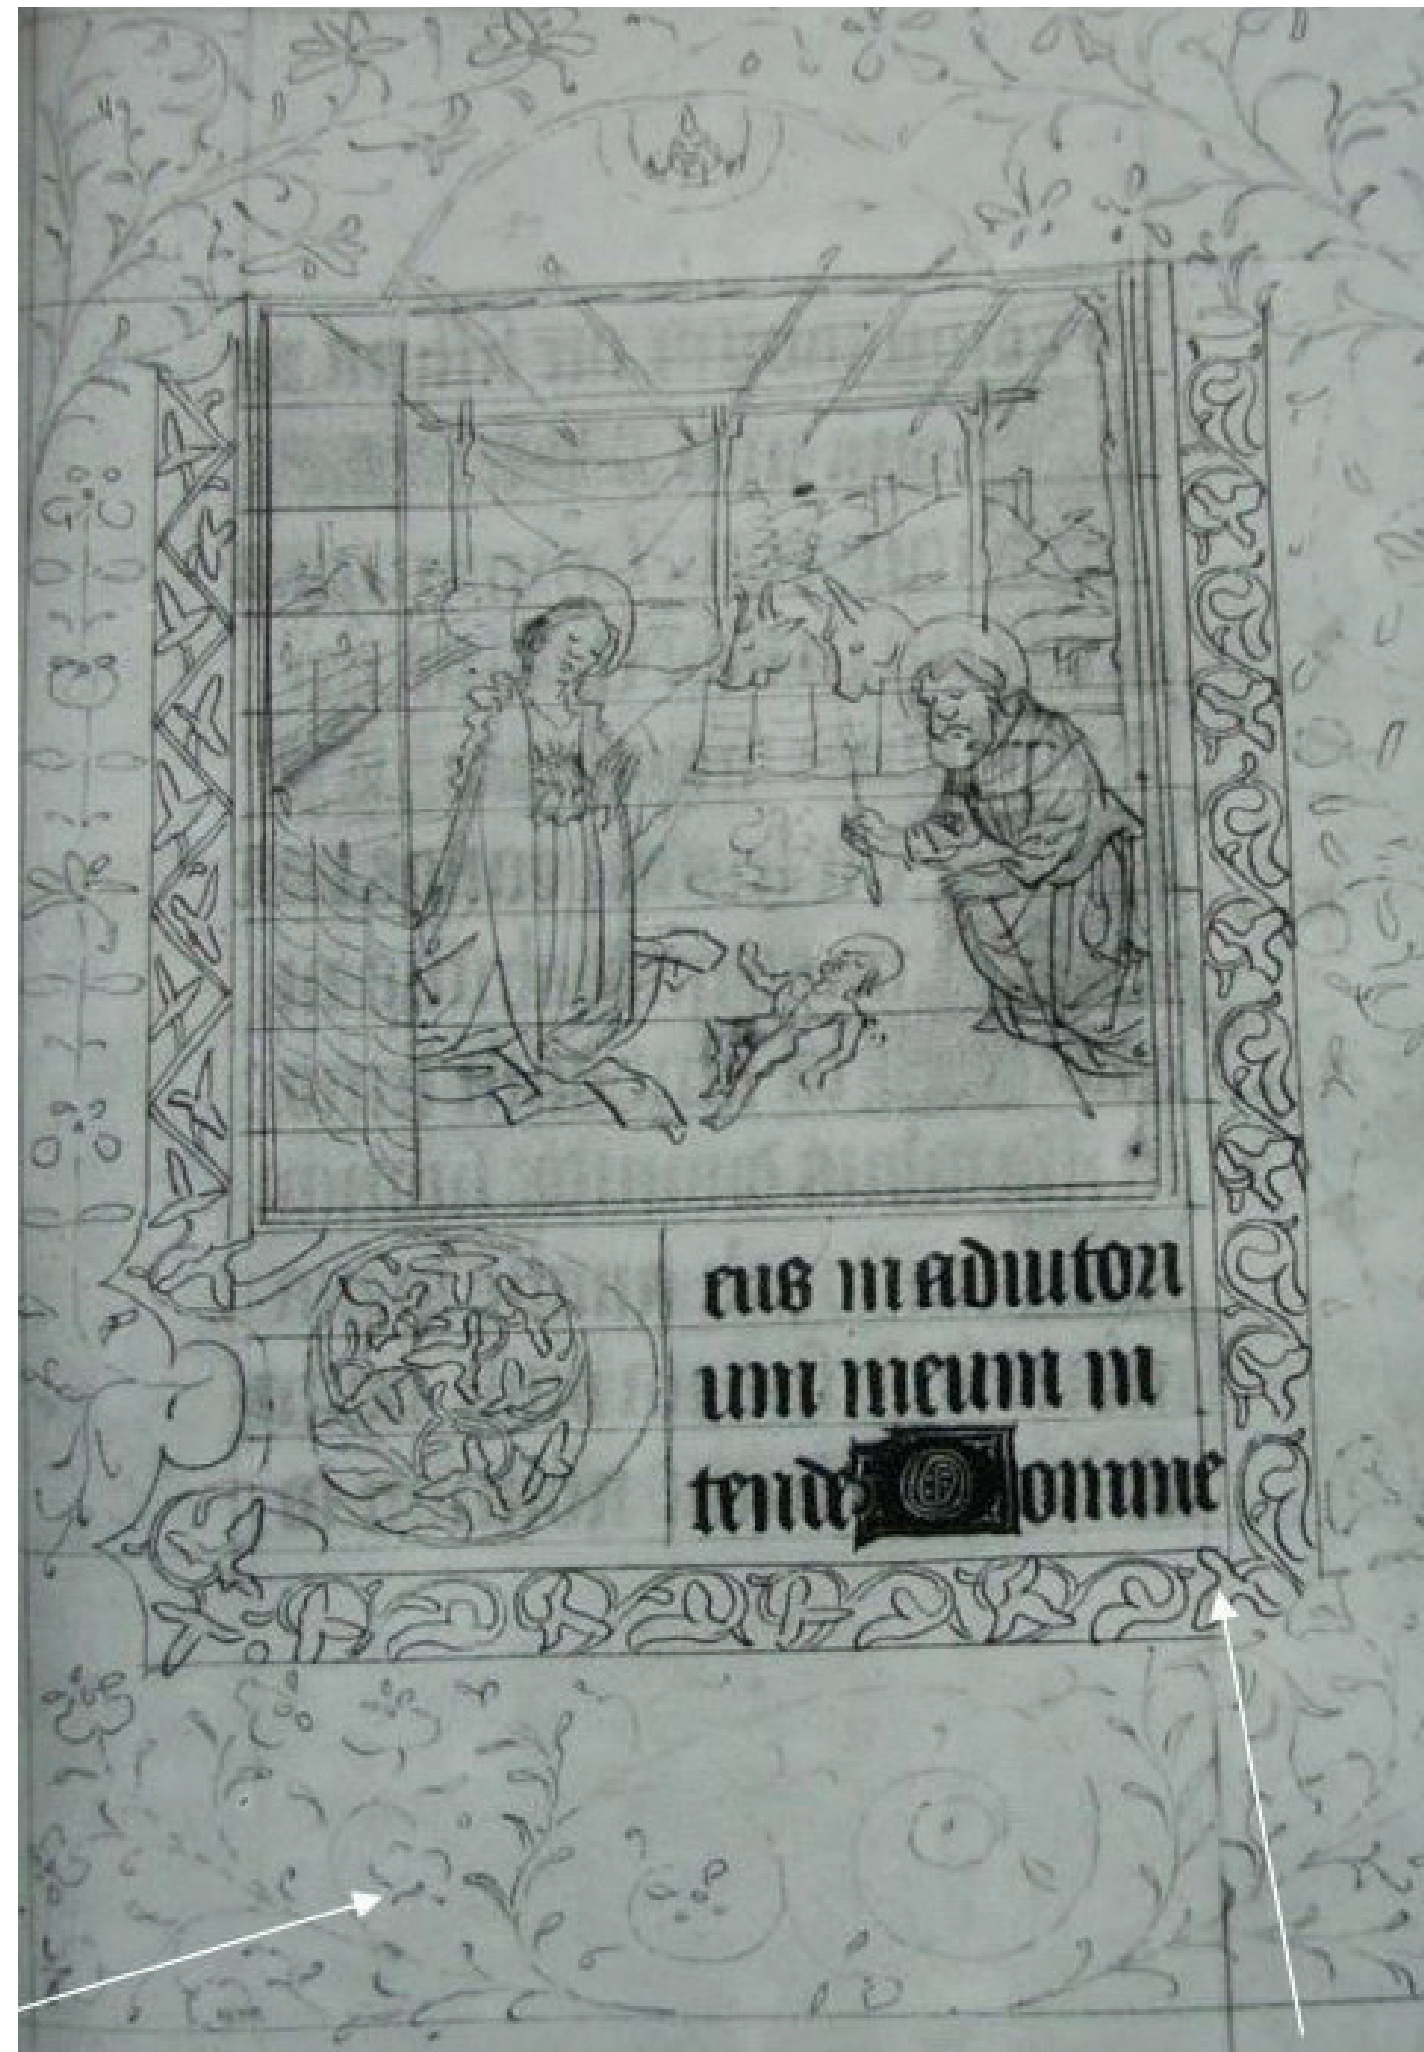 eus in adiutori
um meum in
tende Domine